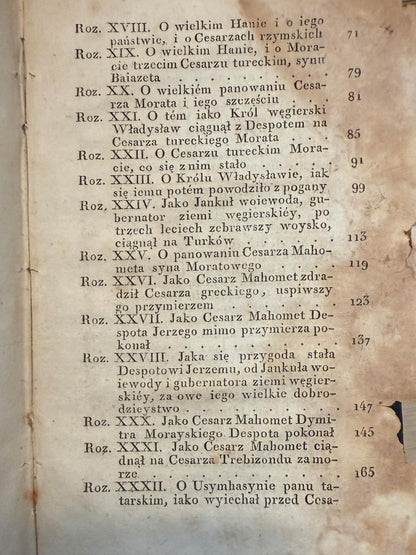 Roz. XVIII. O wielkim Hanie i o iego
państwie, i o Cesarzach rzymskich 71
Roz. XIX. O wielkim Hanie, i o Mora-
cie trzecim Cesarzu tureckim, synu
Baiazeta . . . . . . . . 79
Roz. XX. O wielkiém panowaniu Cesa-
rza Morata i iego szczęściu . . . 81
Roz. XXI. O tém iako Król węgierski
Władysław ciągnął z Despotem na
Cesarza tureckiego Morata . . . 85
Roz. XXII. O Cesarzu tureckim Mora-
cie, co się z nim stało . . . . 91
Roz. XXIII. O Królu Władysławie, iak
się iemu potém powodziło z pogany 99
Roz. XXIV. Jako Jankuł woiewoda, gu-
bernator ziemi węgierskiéy, po
trzech leciech zebrawszy woysko,
ciągnął na Turków . . . . . 113
Roz. XXV. O panowaniu Cesarza Maho-
meta syna Moratowego . . . . 119
Roz. XXVI. Jako Cesarz Mahomet zdra-
dził Cesarza greckiego, uspiwszy
go przymierzem . . . . . 123
Roz. XXVII. Jako Cesarz Mahomet De-
spota Jerzego mimo przymierza po-
konał . . . . . . . . 137
Roz. XXVIII. Jaka się przygoda stała
Despotowi Jerzemu, od Jankuła wo-
iewody i gubernatora ziemi węgier-
skiéy, za owe iego wielkie dobro-
dzieystwo . . . . . . . 147
Roz. XXX. Jako Cesarz Mahomet Dymi-
tra Morayskiego Despota pokonał 145
Roz. XXXI. Jako Cesarz Mahomet cią-
dnął na Cesarza Trebizondu za mo-
rze . . . . . . . . 165
Roz. XXXII. O Usymhasynie panu ta-
tarskim, iako wyiechał przed Cesa-